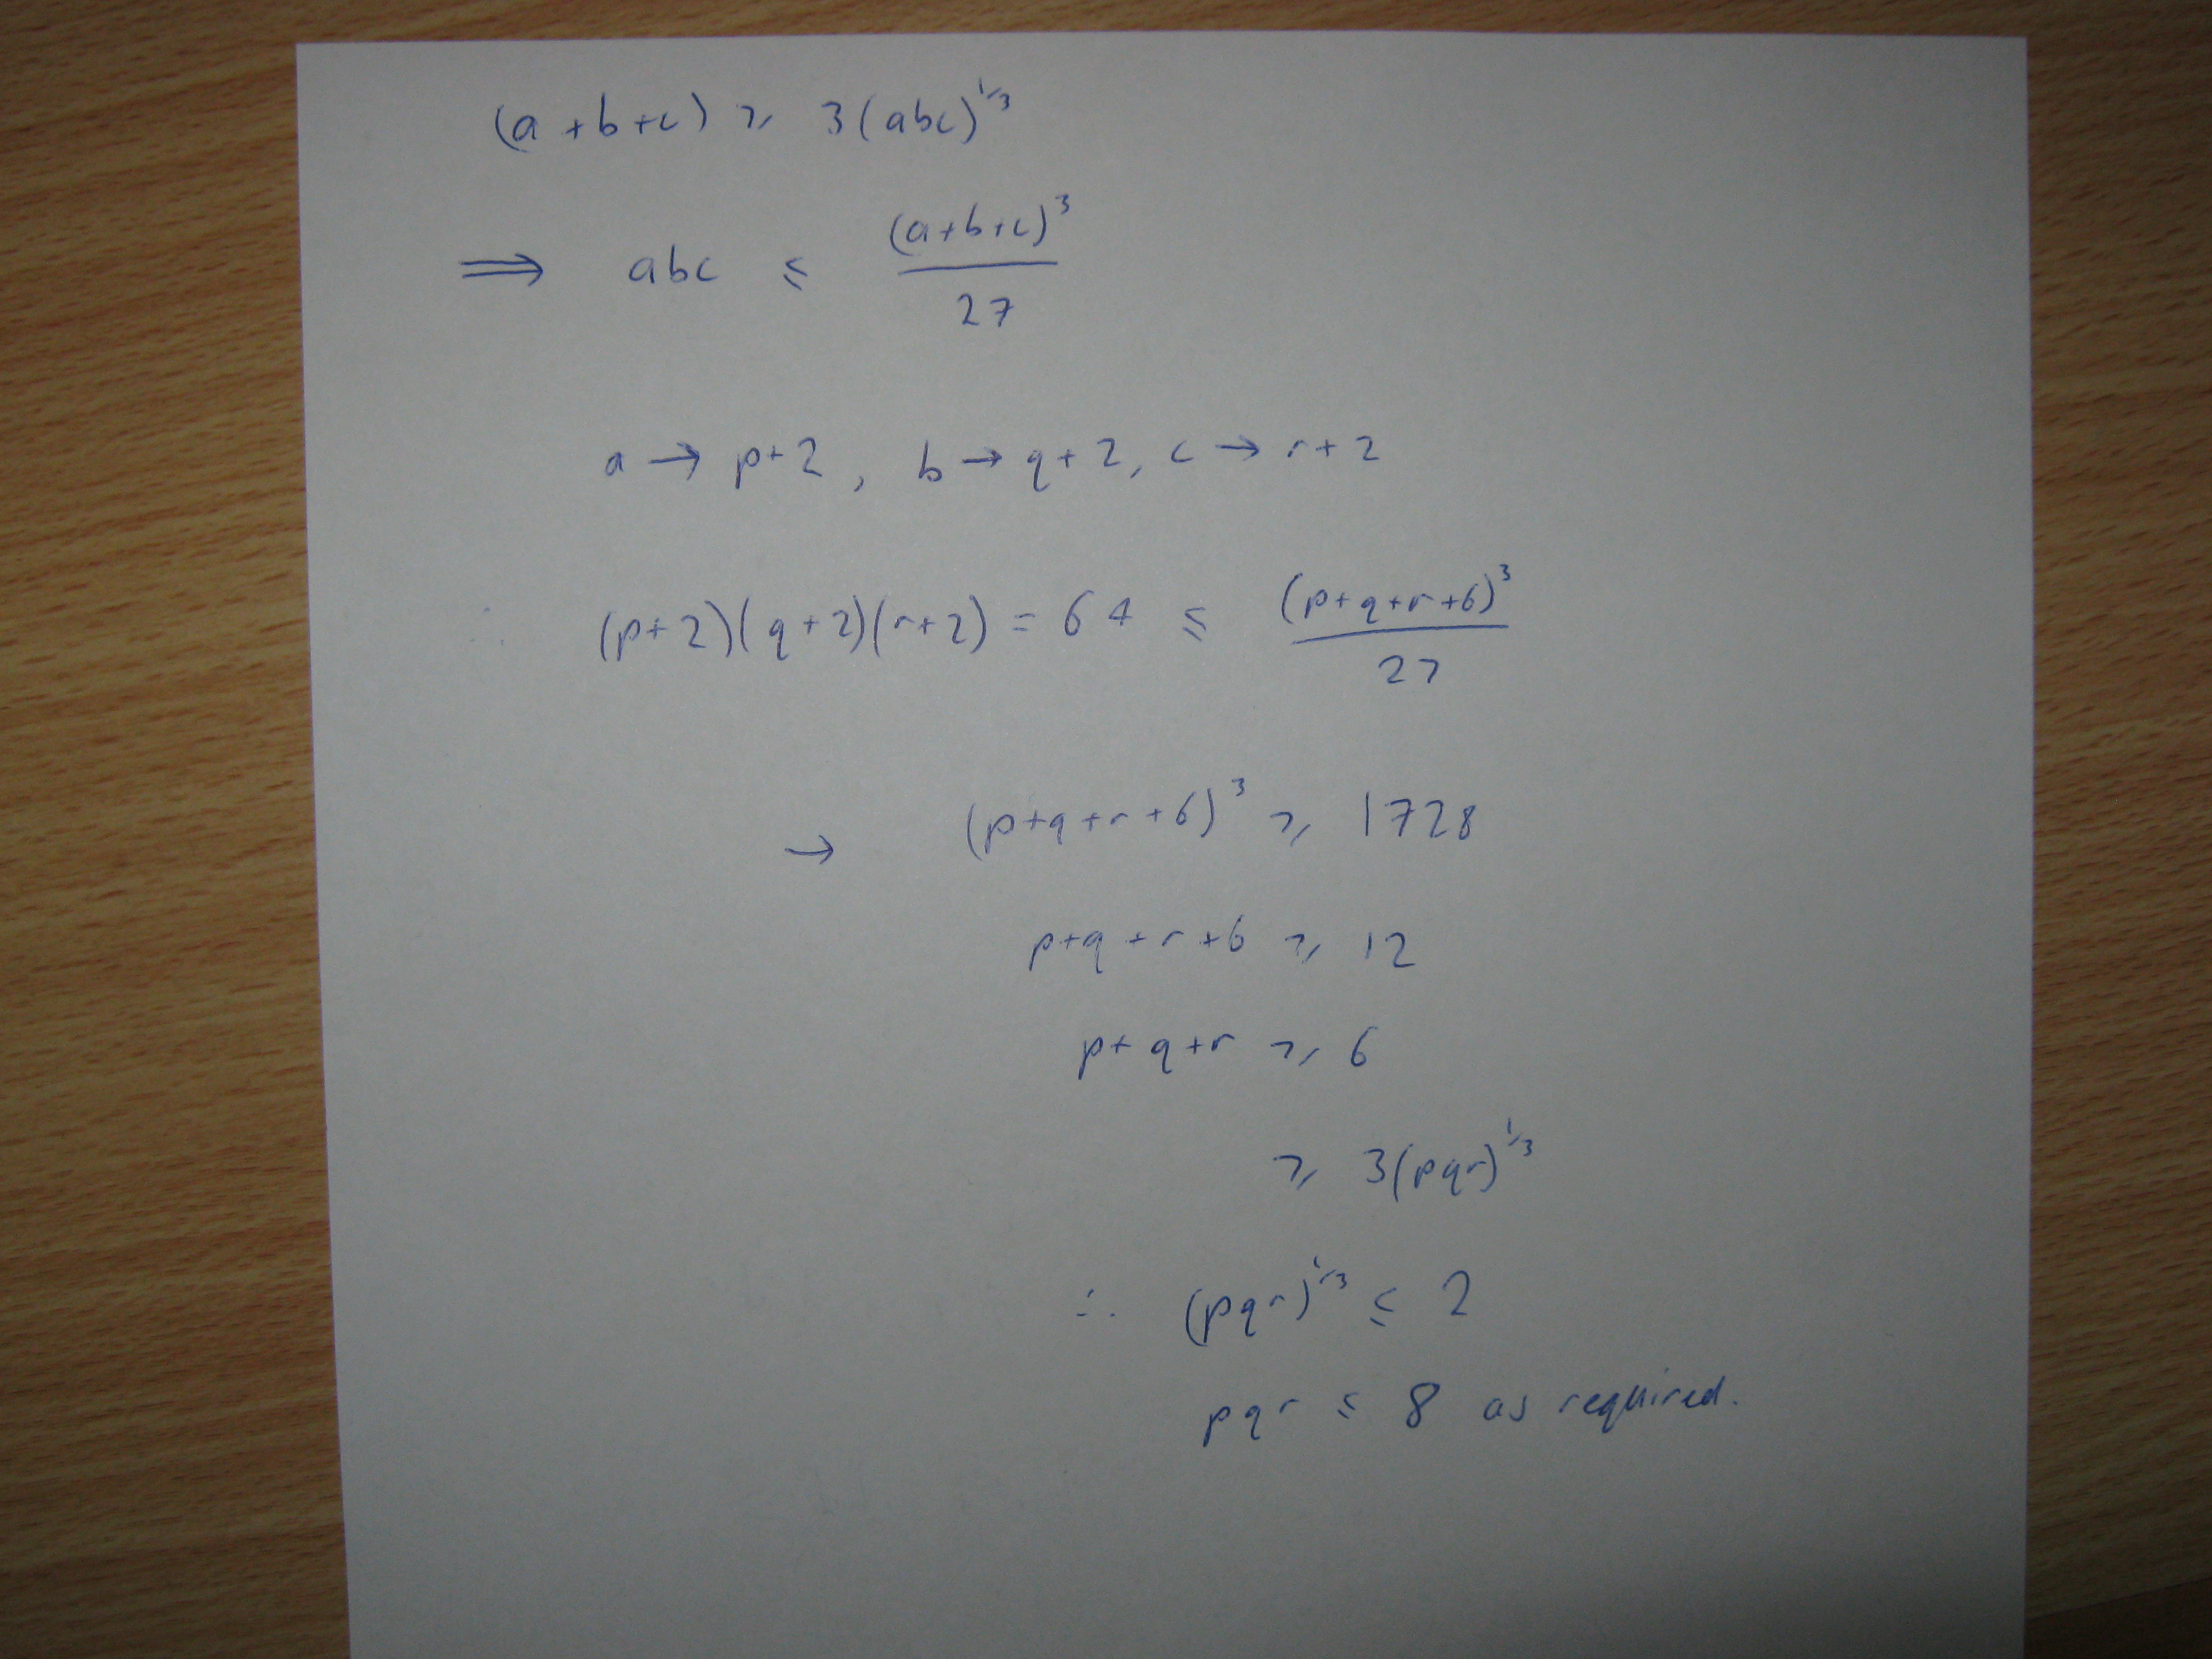 (a+b+c) ≥ 3(abc)^1/3
⟹ abc ≤ (a+b+c)^3 / 27
a → p+2, b → q+2, c → r+2
∴ (p+2)(q+2)(r+2) = 64 ≤ (p+q+r+6)^3 / 27
→ (p+q+r+6)^3 ≥ 1728
p+q+r+6 ≥ 12
p+q+r ≥ 6
≥ 3(pqr)^1/3
∴ (pqr)^1/3 ≤ 2
pqr ≤ 8 as required.